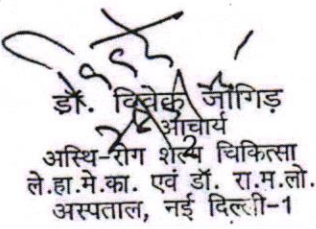 डॉ. विवेक जाँगिड़
आचार्य
अस्थि-रोग शल्य चिकित्सा
ले.हा.मे.का. एवं डॉ. रा.म.लो.
अस्पताल, नई दिल्ली-1